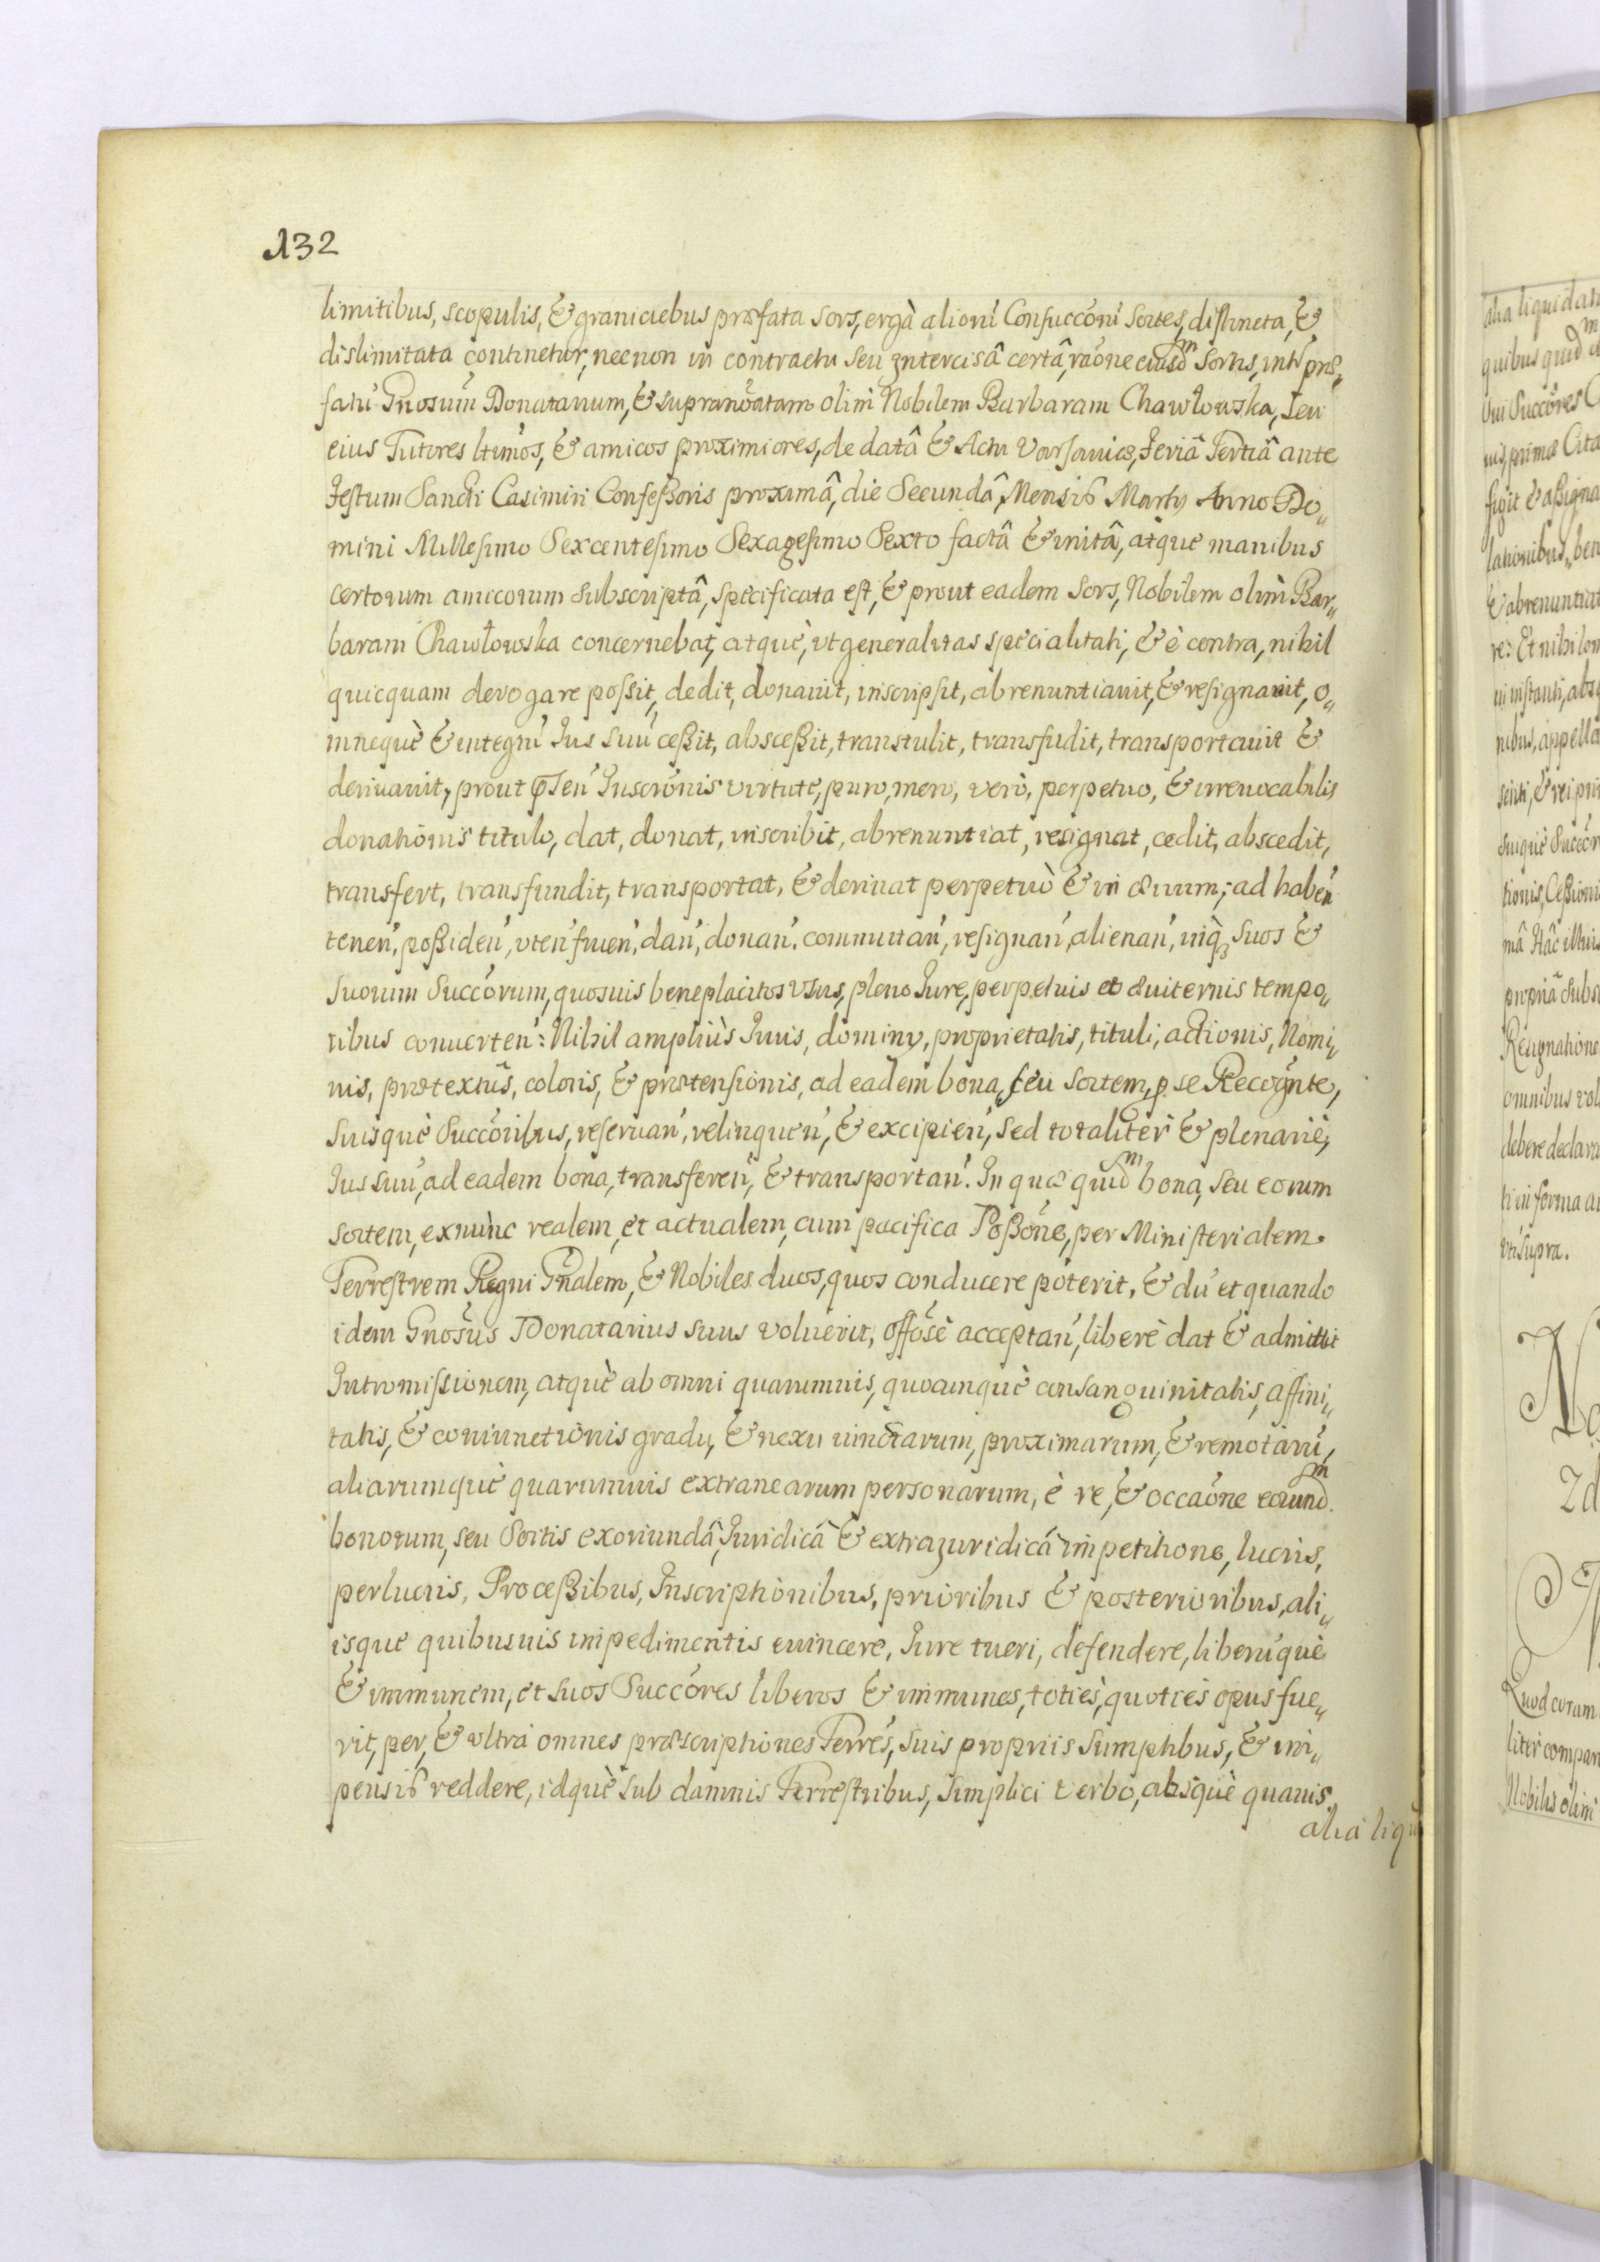 132
limitibus, scopulis, & graniciebus præfata Sors, ergà alioru͂ Consucco͂ru͂ Sortes, distincta, &
dislimitata continetur, necnon in contractu seu Intercisâ certâ, ra͂one eiusdm Sortis, inter præ„
fatu͂ Gnosum Donatarium, & supranoatam olim Nobilem Barbaram Chawłowska, Seu
eius Tutores ltimos, & amicos proximiores, de datâ & Actu Varsauiæ, Feriâ Tertiâ ante
Festum Sancti Casimiri Confeßoris proximâ, die Secundâ, Mensis Martÿ Anno Do„
mini Millesimo Sexcentesimo Sexagesimo Sexto factâ & initâ, atquè manibus
certorum amicorum subscriptâ, specificata est, & prout eadem Sors, Nobilem olim Bar„
baram Chawłowska concernebat, atquè, vt generalitas specialitati, & è contra, nihil
quicquam derogare possit, dedit, donauit, inscripsit, abrenuntiauit, & resignauit, o„
mnequè & integru͂ Jus suu͂ ceßit, absceßit, transtulit, transfudit, transportauit &
deriuauit, prout pñteñ Inscro͂nis virtute, puro, mero, vero, perpetuo, & irreuocabilis
donationis titulo, dat, donat, inscribit, abrenuntiat, resignat, cedit, abscedit,
transfert, transfundit, transportat, & deriuat perpetuò & in æuum; ad habeñ
teneñ, poßideñ, vteñ, frueñ, dañ, donañ, commutañ, resignañ, alienañ, inq3 suos &
suorum Succo͂rum, quosuis beneplacitos vsus, pleno Jure, perpetuis et æuiternis tempo„
ribus conuerteñ: Nihil ampliùs Juris, dominÿ, proprietatis, tituli, actionis, Nomi„
nis, prætextûs, coloris, & prætensionis, ad eadem bona, seu Sortem, p se Recognte,
suisquè Succo͂ribus, reseruañ, relinqueñ, & excipieñ, sed totaliter & plenariè,
Jus suu͂, ad eadem bona, transfereñ, & transportañ. In quæ quidm bona, seu eorum
Sortem, exnùnc realem, et actualem, cum pacifica Poßo͂ne, per Ministerialem
Terrestrem Regni Gñalem, & Nobiles duos, quos conducere poterit, & du͂ et quando
idem Gnosus Donatarius suus voluerit, offosè acceptañ, liberè dat & admittit
Intromissionem, atquè ab omni quarumuis, quocunquè consanguinitatis, affini„
tatis, & coniunctionis gradu, & nexu iunctarum, proximarum, & remotaru͂,
aliarumquè quarumuis extranearum personarum, è re, & occao͂ne eorundm
bonorum, seu Sortis exoriundâ, Juridicâ & extrajuridicâ impetitione, lucris,
perlucris, Proceßibus, Inscriptionibus, prioribus & posterioribus, ali„
isque quibusuis impedimentis euincere, Jure tueri, defendere, liberu͂què
& immunem, et suos Succo͂res liberos & immunes, totiès, quotiès opus fue„
rit, per, & vltra omnes præscriptiones Terres, suis propriis sumptibus, & im„
pensis reddere, idquè sub damnis Terrestribus, simplici verbo, absquè quauis
alia liqu